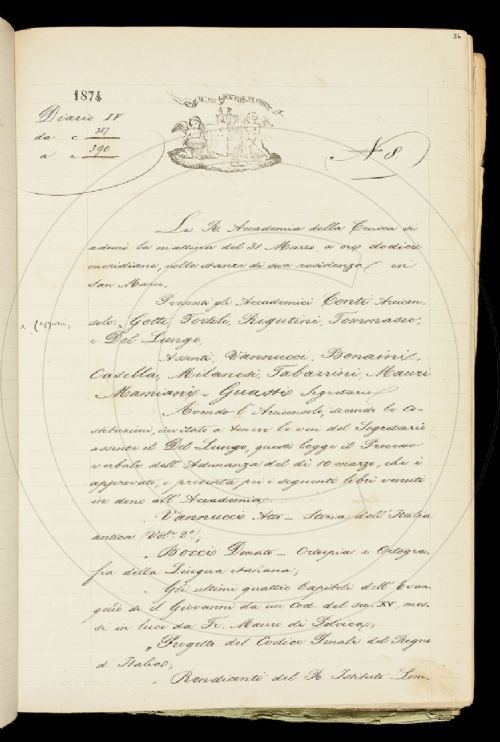 86
1874
Diario IV
da c 387
a c 390
IL PIÙ BEL FIOR NE COGLIE
N. 8.
La R. Accademia della Crusca si
adunò la mattina del 31 Marzo a ore dodici
meridiane, nelle stanze di sua residenza in
San Marco.
Presenti gli Accademici Conti Arcicon-
a Capponi,
solo, a Gotti, Tortoli, Rigutini, Tommaseo,
e Del Lungo.
Assenti, Vannucci, Bonaini,
Casella, Milanesi, Tabarrini, Mauri
Mamiani - Guasti Segretario.
Avendo l'Arciconsolo, secondo le Co-
stituzioni, invitato a tenere le veci del Segretario
assente il Del Lungo, questi legge il Processo
verbale dell'Adunanza del dì 10 marzo, che è
approvato, e presenta poi i seguenti libri venuti
in dono all'Accademia.
" Vannucci Atto - Storia dell'Italia
antica (Vol. 2°);
" Bocci Donato - Ortografia
fia della Lingua italiana;
" Gli ultimi quattro Capitoli dell'Evan-
gelio di S. Giovanni da un Cod. del sec. XV, mes-
si in luce da Fr. Mauro di Polvica;
" Progetto del Codice Penale del Regno
d'Italia;
" Rendiconti del R. Istituto Lom-